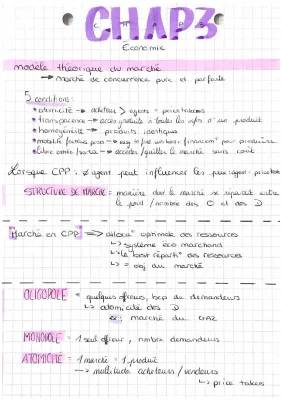 CHAP3
Economie
modèle théorique du marché
→ marché de concurrence pure et parfaite
5 conditions:
• atomicité → acheteurs > agents = price takers
• transparence → accès gratuits à toutes les infos d'un produit
• homogénéité → produits identiques
• mobilité facteurs prod →
• libre entrée / sortie → accéder / quitter le marché sans coût
Lorsque CPP: ∅ agent peut influencer les prix:
STRUCTURE DE MARCHÉ = manière dont le marché se répartit entre
le poids / nombre des O et des D
Marché en CPP ⇒ allocat° optimale des ressources
↳ système éco marchand
↳ la best répartit° des ressources
↳ = obj du marché
OLIGOPOLE = quelques offreurs, bcp du demandeurs
↳ atomicité des D
ex: marché du GAZ
MONOPOLE = 1 seul offreur, nombre demandeurs
ATOMICITÉ = 1 marché = 1 produit
↳ multitude acheteurs / vendeurs
↳ price takers